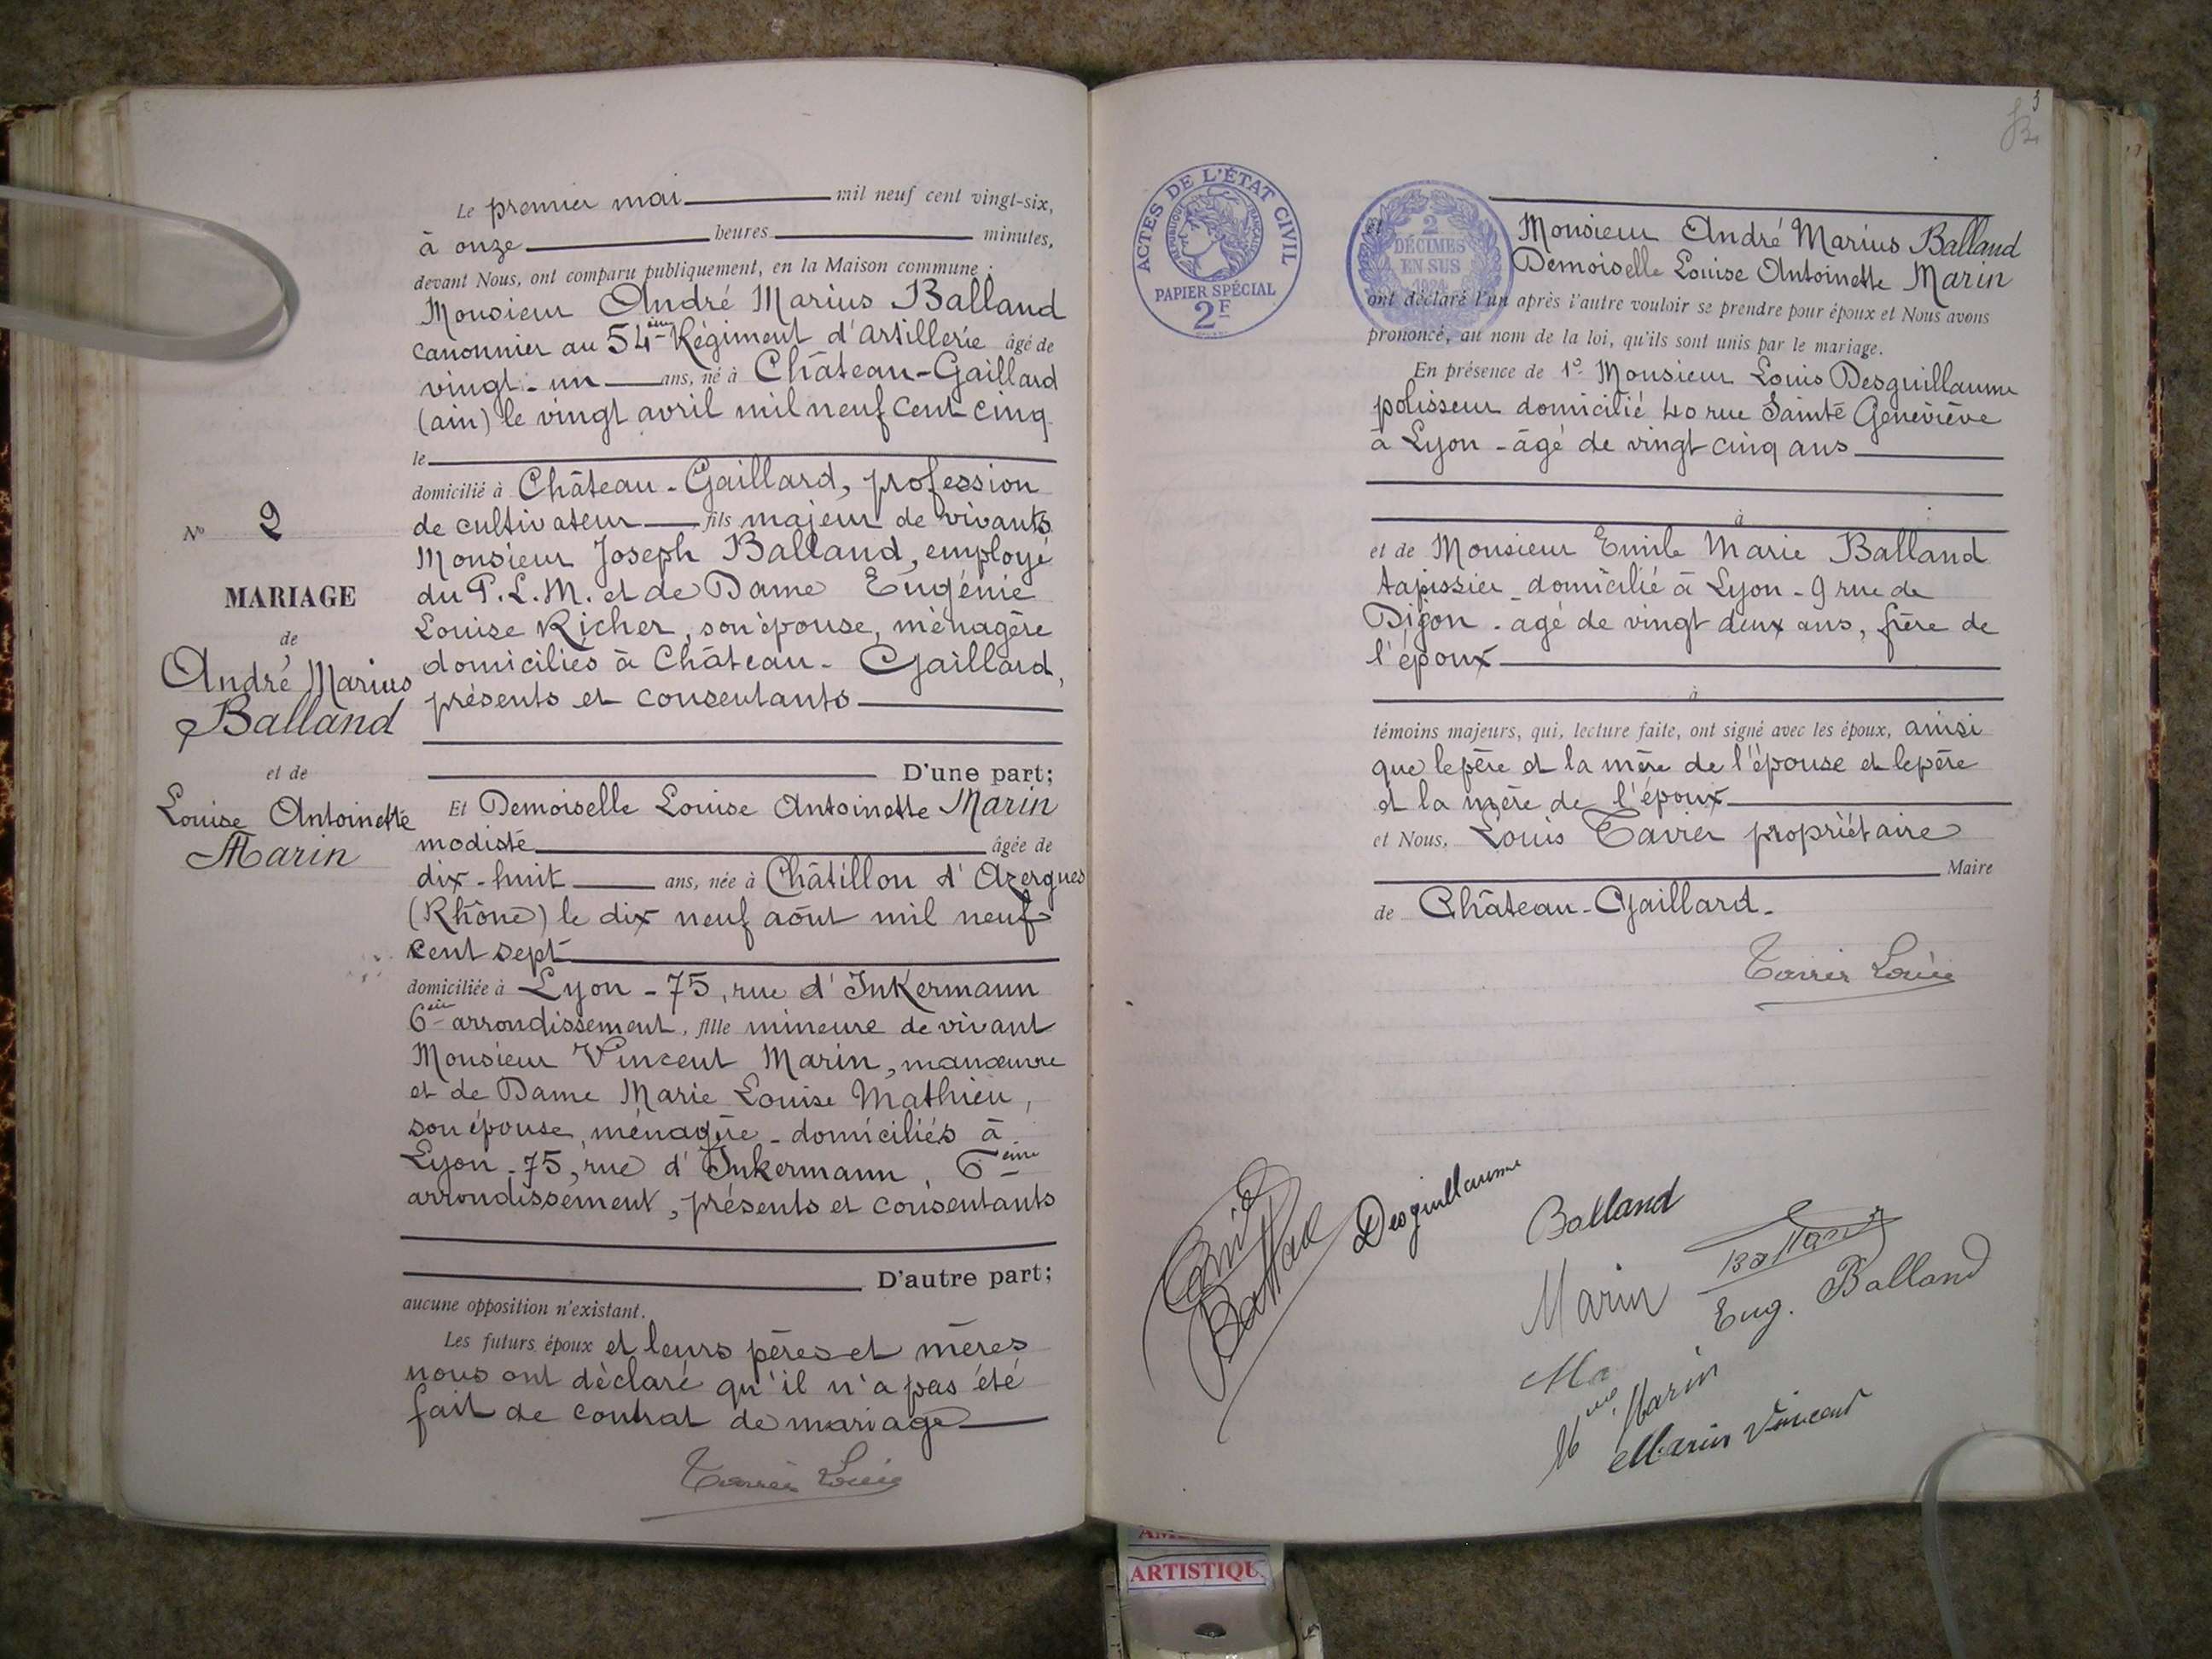 Le premier mai mil neuf cent vingt-six,
à onze heures minutes,
devant Nous, ont comparu publiquement, en la Maison commune :
Monsieur André Marius Balland
canonnier au 54ème Régiment d'artillerie âgé de
vingt-un ans, né à Château-Gaillard
(ain) le vingt avril mil neuf cent cinq
le
domicilié à Château-Gaillard, profession
de cultivateur fils majeur de vivants
Monsieur Joseph Balland, employé
du P.L.M. et de Dame Eugénie
Louise Richer, son épouse, ménagère
domiciliés à Château-Gaillard,
présents et consentants
D'une part;
Et Demoiselle Louise Antoinette Marin
modiste âgée de
dix-huit ans, née à Châtillon d'Azergues
(Rhône) le dix neuf août mil neuf
cent sept
domiciliée à Lyon - 75, rue d'Inkermann
6ème arrondissement, fille mineure de vivant
Monsieur Vincent Marin, manœuvre
et de Dame Marie Louise Mathieu,
son épouse, ménagère - domiciliés à
Lyon - 75, rue d'Inkermann, 6ème
arrondissement, présents et consentants
D'autre part;
aucune opposition n'existant.
Les futurs époux et leurs pères et mères
nous ont déclaré qu'il n'a pas été
fait de contrat de mariage
Tavier Louis
N° 2
MARIAGE
de
André Marius
Balland
et de
Louise Antoinette
Marin
3
ACTES DE L'ÉTAT CIVIL
RÉPUBLIQUE FRANÇAISE
PAPIER SPÉCIAL
2F
2
DÉCIMES
EN SUS
1924
et
Monsieur André Marius Balland
Demoiselle Louise Antoinette Marin
ont déclaré l'un après l'autre vouloir se prendre pour époux et Nous avons
prononcé, au nom de la loi, qu'ils sont unis par le mariage.
En présence de 1° Monsieur Louis Desguillaume
polisseur domicilié 40 rue Sainte Geneviève
à Lyon - âgé de vingt cinq ans
à
et de Monsieur Emile Marie Balland
tapissier - domicilié à Lyon - 9 rue de
Dijon - agé de vingt deux ans, frère de
l'époux
à
témoins majeurs, qui, lecture faite, ont signé avec les époux, ainsi
que le père et la mère de l'épouse et le père
et la mère de l'époux
et Nous, Louis Tavier propriétaire
Maire
de Château-Gaillard.
Tavier Louis
Emile
Balland
Desguillaume
Balland
Marin
Balland
Eug. Balland
Ma
Mme Marin
Marin Vincent
ARTISTIQU